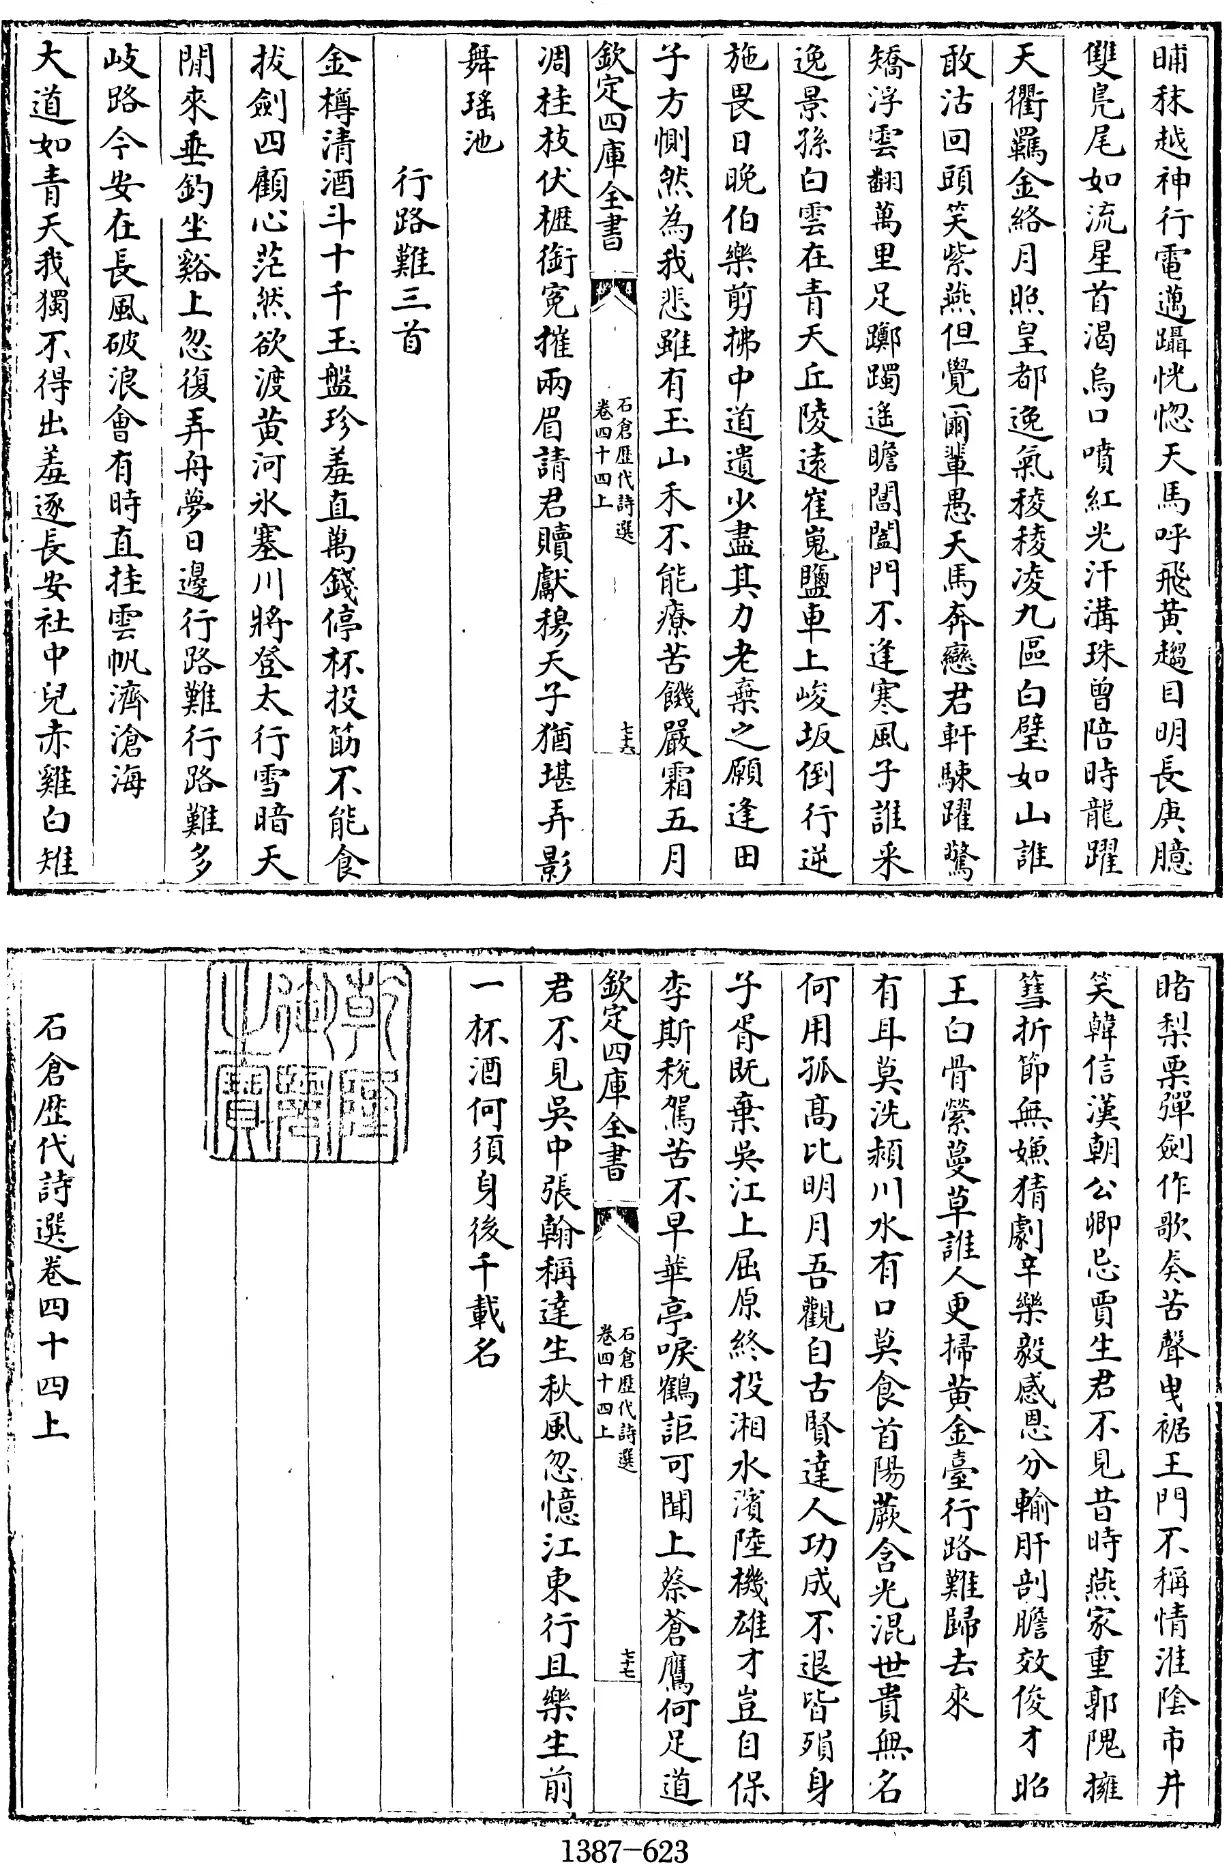 晡秣越神行電邁躡恍惚天馬呼飛黃趨目明長庚臆
雙鳬尾如流星首渴烏口噴紅光汗溝珠曾陪時龍躍
天衢羈金絡月照皇都逸氣稜稜凌九區白璧如山誰
敢沽回頭笑紫燕但覺爾輩愚天馬奔戀君軒駷躍驚
矯浮雲翻萬里足躑躅遥瞻閶闔門不逢寒風子誰采
逸景孫白雲在青天丘陵遠崔嵬鹽車上峻坂倒行逆
施畏日晚伯樂剪拂中道遺少盡其力老棄之願逢田
子方惻然為我悲雖有玉山禾不能療苦饑嚴霜五月
欽定四庫全書
石倉歷代詩選
卷四十四上
七十六
凋桂枝伏櫪銜寃摧兩眉請君贖獻穆天子猶堪弄影
舞瑶池
行路難三首
金樽清酒斗十千玉盤珍羞直萬錢停杯投筯不能食
拔劍四顧心茫然欲渡黄河氷塞川將登太行雪暗天
閒來垂釣坐谿上忽復弄舟夢日邊行路難行路難多
岐路今安在長風破浪會有時直挂雲帆濟滄海
大道如青天我獨不得出羞逐長安社中兒赤雞白雉
賭梨栗彈劍作歌奏苦聲曳裾王門不稱情淮陰市井
笑韓信漢朝公卿忌賈生君不見昔時燕家重郭隗擁
篲折節無嫌猜劇辛樂毅感恩分輸肝剖膽效俊才昭
王白骨縈蔓草誰人更掃黄金臺行路難歸去來
有耳莫洗潁川水有口莫食首陽蕨含光混世貴無名
何用孤高比明月吾觀自古賢達人功成不退皆殞身
子胥既棄吳江上屈原終投湘水濱陸機雄才豈自保
李斯稅駕苦不早華亭唳鶴詎可聞上蔡蒼鷹何足道
欽定四庫全書
石倉歷代詩選
卷四十四上
七十七
君不見吳中張翰稱達生秋風忽憶江東行且樂生前
一杯酒何須身後千載名
乾隆御覽之寶
石倉歷代詩選卷四十四上
1387-623